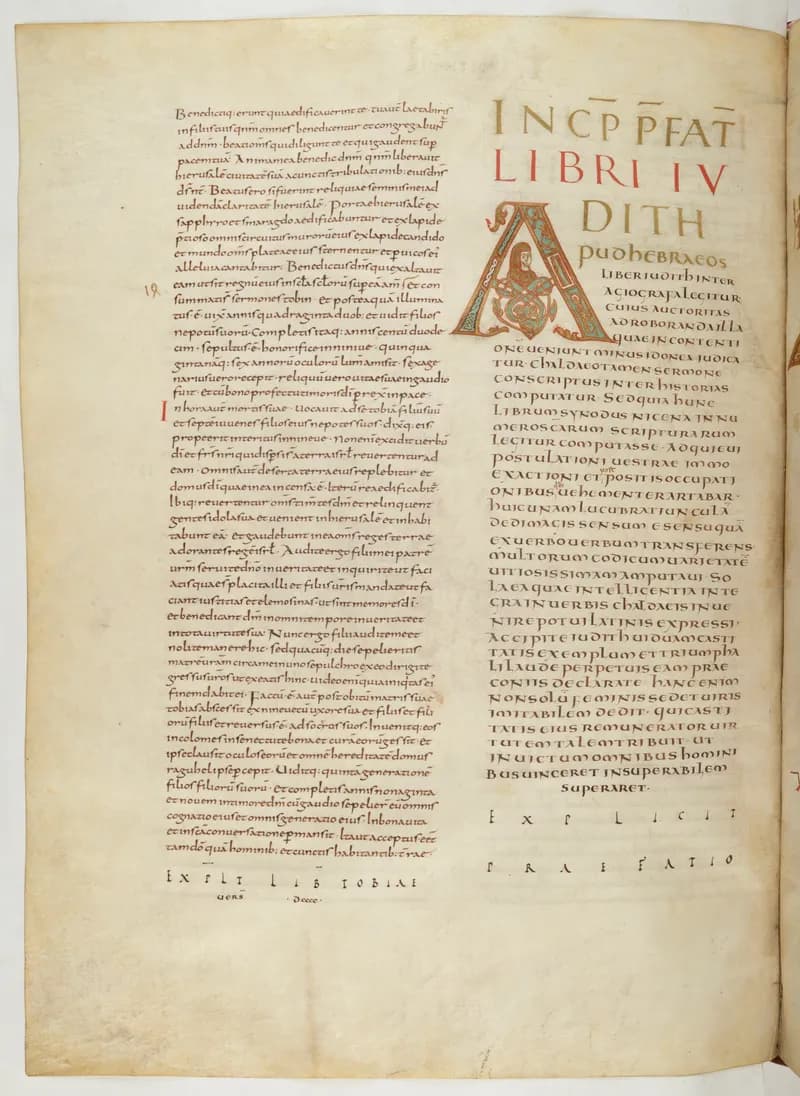 Benedictiq; erunt quiaedificauerint te · tuaut laetaberis
infiliistuis qnm omnes benedicentur et congregabunt
ad dnm · beatiomsquidiligunt te et quigaudent sup
pacem tuā · Animamea benedic dnm qnm liberauit
hierusalē ciuitatē suā acunctis tribulationib; eius dns
ds nr̄ · Beatus ero sifuerint reliquiae seminis mei ad
uidendā claritatē hierusalē · Portae hierusalē ex
sapphiro et smaragdo aedificabuntur et exlapide
p̄tioso omnis circuitus murorū eius exlapide candido
et mundo om̄s plateae eius sternentur et p uicos ei'
alleluia cantabitur · Benedictus dn̄s qui exaltauit
eam ut sit regnū eius in scl̄a sclorū sup eā am̄ · Et con
summati sunt sermones tobiae · Et posteaquā illumina
tus ē · uixit annis quadraginta duob; et uidit filios
nepotū suorū · Completis itaq; annis centū duode
cim · sepultus ē honorifice in niniue · quinqua
ginta naq; & sex annorū oculorū lumē amisit · sexage
narius uero recepit · reliquū uero uitae suae in gaudio
fuit · Et cū bono profectu timoris di perrex in pace ·
In hora aut mortis suae · uocauit ad se tobiā filiū suū
et septē iuuenes filios eius nepotes suos · dixitq; eis
prope erit interitus nineue · Non enī excidit uerbū
di et frs nri qui dispersi st a terra isrl reuertentur ad
eam · Omnis aut deserta terra eius replebitur et
domus di quae in ea incensa ē · iterū reaedificabit̄ ·
Ibiq; reuertentur om̄s timentes dm̄ et relinquent
gentes idola sua · et uenient in hierusalē et inhabi
tabunt eā · Et gaudebunt in ea om̄s reges terrae
adorantes regē isrl · Audite ergo filii mei patrē
urm seruite dn̄o in ueritate et inquirite ut faci
atis quae s placita illi et filiis uris mandate ut fa
ciant iustitias et elemosinas · ut sint memores di ·
et benedicant dm̄ in omni tempore in ueritate et
in tota uirtute sua · Nunc ergo filii audite me et
nolite manere hic · sed quacuq; die sepelieritis
matrē uram circa me in uno sepulchro ex eo dirigite
gressus uros ut exeatis hinc · uideo enī quia iniqitas ei'
finem dabit ei · Factū ē aut post obitū matris suae
tobias abscessit ex nineue cū uxore sua et filiis et fili
orū filiis et reuersus ē · ad socros suos · Inuenitq; eos
incolomes in senectute bona et curā eorū gessit · et
ipse clausit oculos eorū et omnē hereditatē domus
raguhelis ipse pcepit · Uiditq; quintā generationē
filios filiorū suorū · Et completis annis nonaginta
et nouem in timore dm̄ cū gaudio sepelier eū omnis
cognatio eius et omnis generatio eius · In bona uita
et in sc̄a conuersatione pmansit · Ita ut acceptus eet
tam dō quā hominib; et cunctis habitantib; t̄rae ·
EXPLT LIB TOBIAE
UERS · DCCCC ·
INCP̄ P̄FAT̄
LIBRI IU
DITH
APUD HEBRAEOS
LIBER IUDITH INTER
AGIOGRAFA LEGITUR
CUIUS AUCTORITAS
AD ROBORANDA ILLA
QUAE IN CONTENTI
ONĒ UENIUNT MINUS IDONEA IUDICA
TUR · CHALDAEO TAMEN SERMONE
CONSCRIPTUS INTER HISTORIAS
COMPUTATUR · SED QUIA HUNC
LIBRUM SYNODUS NICENA IN NU
MERO SCARUM SCRIPTURARUM
LEGITUR COMPUTASSE · ADQUIEUI
POSTULATIONI UESTRAE IMMO
EXACTIONI ET POSITIS OCCUPATI
ONIBUS UEHEMENTER ARTABAR ·
HUIC UNAM LUCUBRATIUNCULĀ
DEDI MAGIS SENSUM E SENSU QUĀ
EX UERBO UERBUM TRANSFERENS
MULTORUM CODICUM UARIETATĒ
UITIOSISSIMAM AMPUTAUI · SO
LA EA QUAE INTELLIGENTIA INTE
GRA IN UERBIS CHALDAEIS INUE
NIRE POTUI LATINIS EXPRESSI ·
ACCIPITE IUDITH UIDUAM CASTI
TATIS EXEMPLUM ET TRIUMPHA
LI LAUDE PERPETUIS EAM PRAE
CONIIS DECLARATE · HANC ENIM
NON SOLŪ FEMINIS SED ET UIRIS
IMITABILEM DEDIT · QUI CASTI
TATIS EIUS REMUNERATOR UIR
TUTEM TALEM TRIBUIT · UT
INUICTUM OMNIBUS HOMINI
BUS UINCERET INSUPERABILEM
SUPERARET ·
EXPLICIT
PRAEFATIO